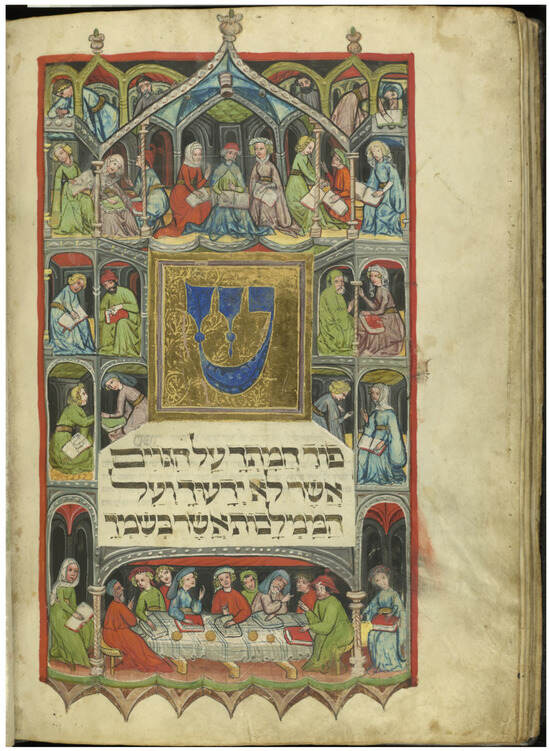 ש
פך חמתך על הגוים
אשר לא ידעוך ועל
הממלכות אשר בשמך